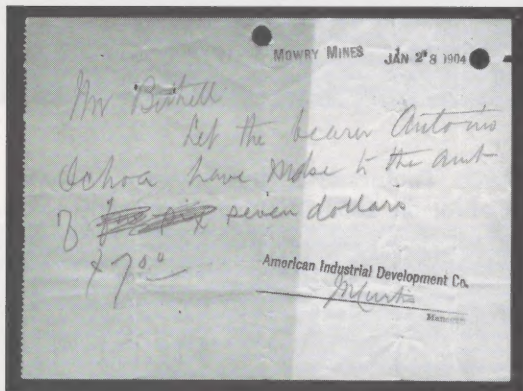 MOWRY MINES JAN 28 1904
Mr
Let the bearer Antonio
Ochoa have Mdse to the amt
of seven dollars
$7.00
American Industrial Development Co.
Manager